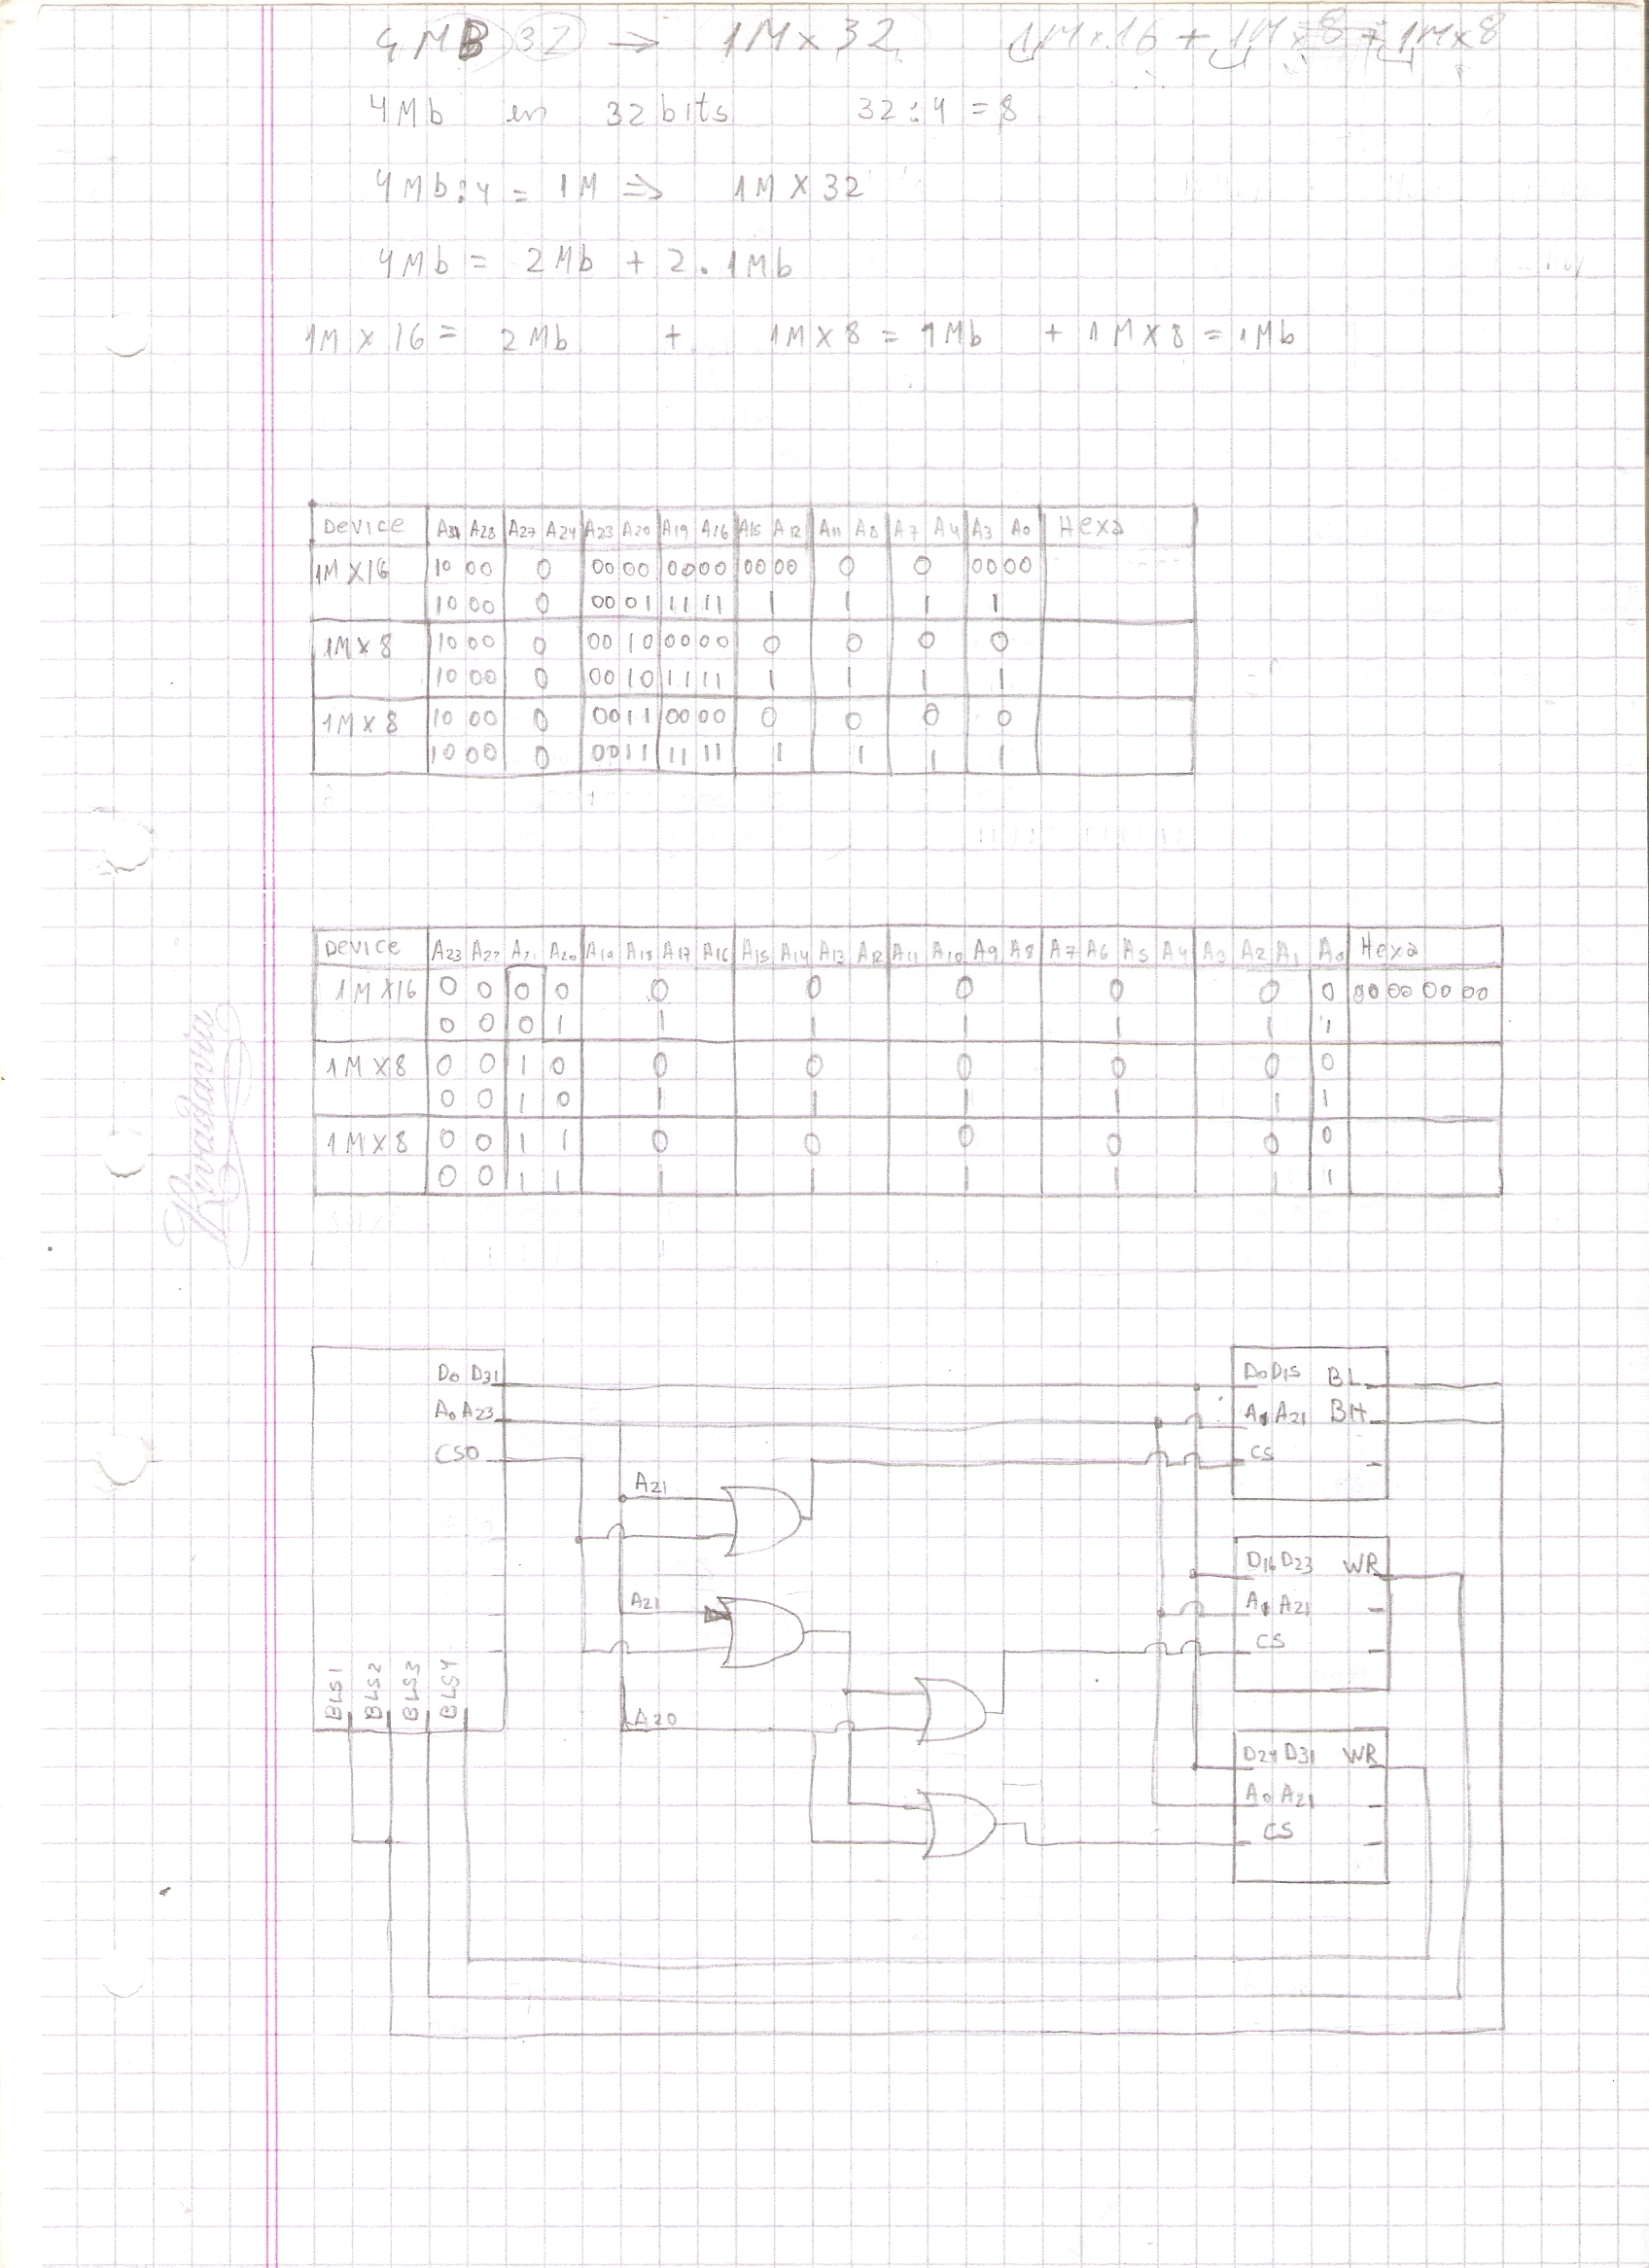 4MB 32 => 1M x 32 1M x 16 + 1M x 8 + 1M x 8
4Mb en 32 bits 32 : 4 = 8
4Mb : 4 = 1M => 1M X 32
4Mb = 2Mb + 2 . 1Mb
1M X 16 = 2Mb + 1M X 8 = 1Mb + 1M X 8 = 1Mb
Device A31 A28 A27 A24 A23 A20 A19 A16 A15 A12 A11 A8 A7 A4 A3 A0 Hexa
1M X16 10 00 0 00 00 0000 0000 0 0 0000
10 00 0 00 01 11 11 1 1 1 1
1M X 8 10 00 0 00 10 00 00 0 0 0 0
10 00 0 00 10 11 11 1 1 1 1
1M X 8 10 00 0 0011 00 00 0 0 0 0
10 00 0 0011 11 11 1 1 1 1
Device A23 A22 A21 A20 A19 A18 A17 A16 A15 A14 A13 A12 A11 A10 A9 A8 A7 A6 A5 A4 A3 A2 A1 A0 Hexa
1M X16 0 0 0 0 0 0 0 0 0 0 00 00 00 00
0 0 0 1 1 1 1 1 1 1
1M X8 0 0 1 0 0 0 0 0 0 0
0 0 1 0 1 1 1 1 1 1
1M X8 0 0 1 1 0 0 0 0 0 0
0 0 1 1 1 1 1 1 1 1
Rivadavia
D0 D31 D0 D15 BL
A0 A23 A0 A21 BH
CS0 CS
A21
D16 D23 WR
A21 A0 A21
CS
BLS1 BLS2 BLS3 BLS4
A20
D24 D31 WR
A0 A21
CS